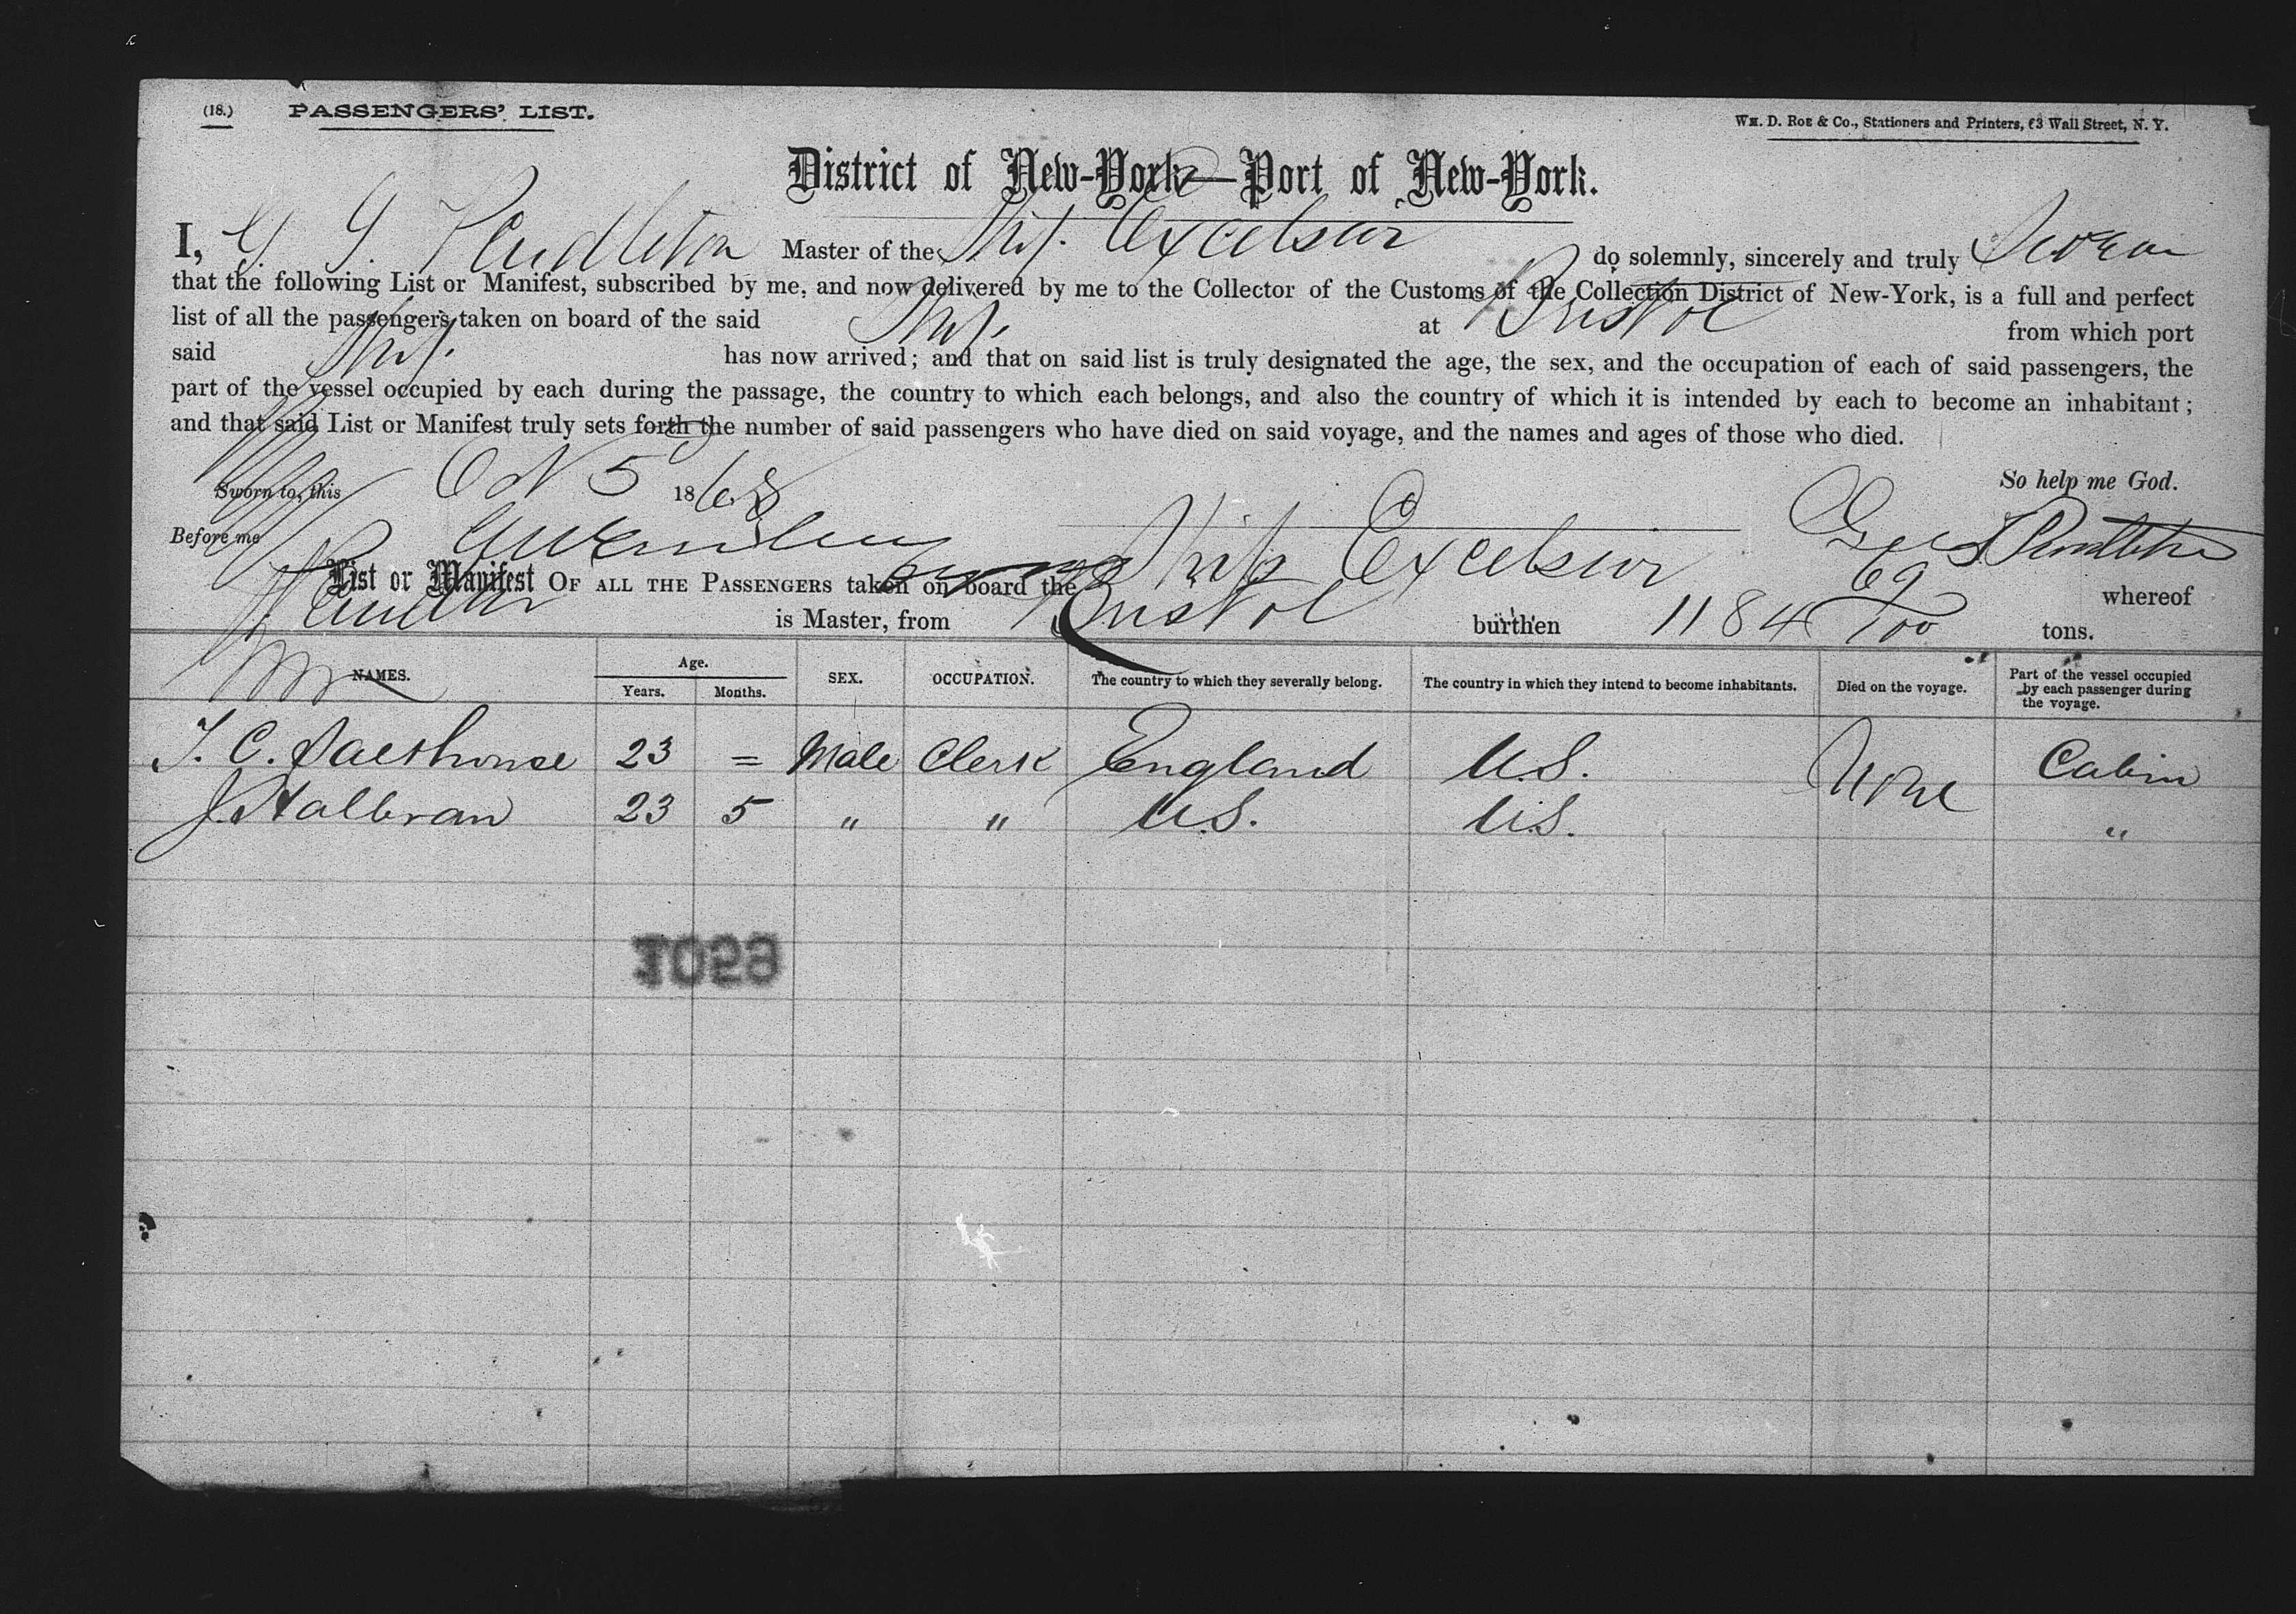 (18.) PASSENGERS' LIST.
WM. D. ROE & Co., Stationers and Printers, 63 Wall Street, N. Y.
District of New-York—Port of New-York.
I, G. G. Pendleton Master of the Ship Excelsior do solemnly, sincerely and truly Swear
that the following List or Manifest, subscribed by me, and now delivered by me to the Collector of the Customs of the Collection District of New-York, is a full and perfect
list of all the passengers taken on board of the said Ship at Bristol from which port
said Ship has now arrived; and that on said list is truly designated the age, the sex, and the occupation of each of said passengers, the
part of the vessel occupied by each during the passage, the country to which each belongs, and also the country of which it is intended by each to become an inhabitant;
and that said List or Manifest truly sets forth the number of said passengers who have died on said voyage, and the names and ages of those who died.
So help me God.
Sworn to, this Oct 5 1868
Before me
List or Manifest OF ALL THE PASSENGERS taken on board the Ship Excelsior whereof
Pendleton is Master, from Bristol burthen 1184 69/100 tons.
NAMES. Age. Years. Months. SEX. OCCUPATION. The country to which they severally belong. The country in which they intend to become inhabitants. Died on the voyage. Part of the vessel occupied by each passenger during the voyage.
T. C. 23 = Male Clerk England U.S. None Cabin
J. Halbran 23 5 " " U.S. U.S. "
1059